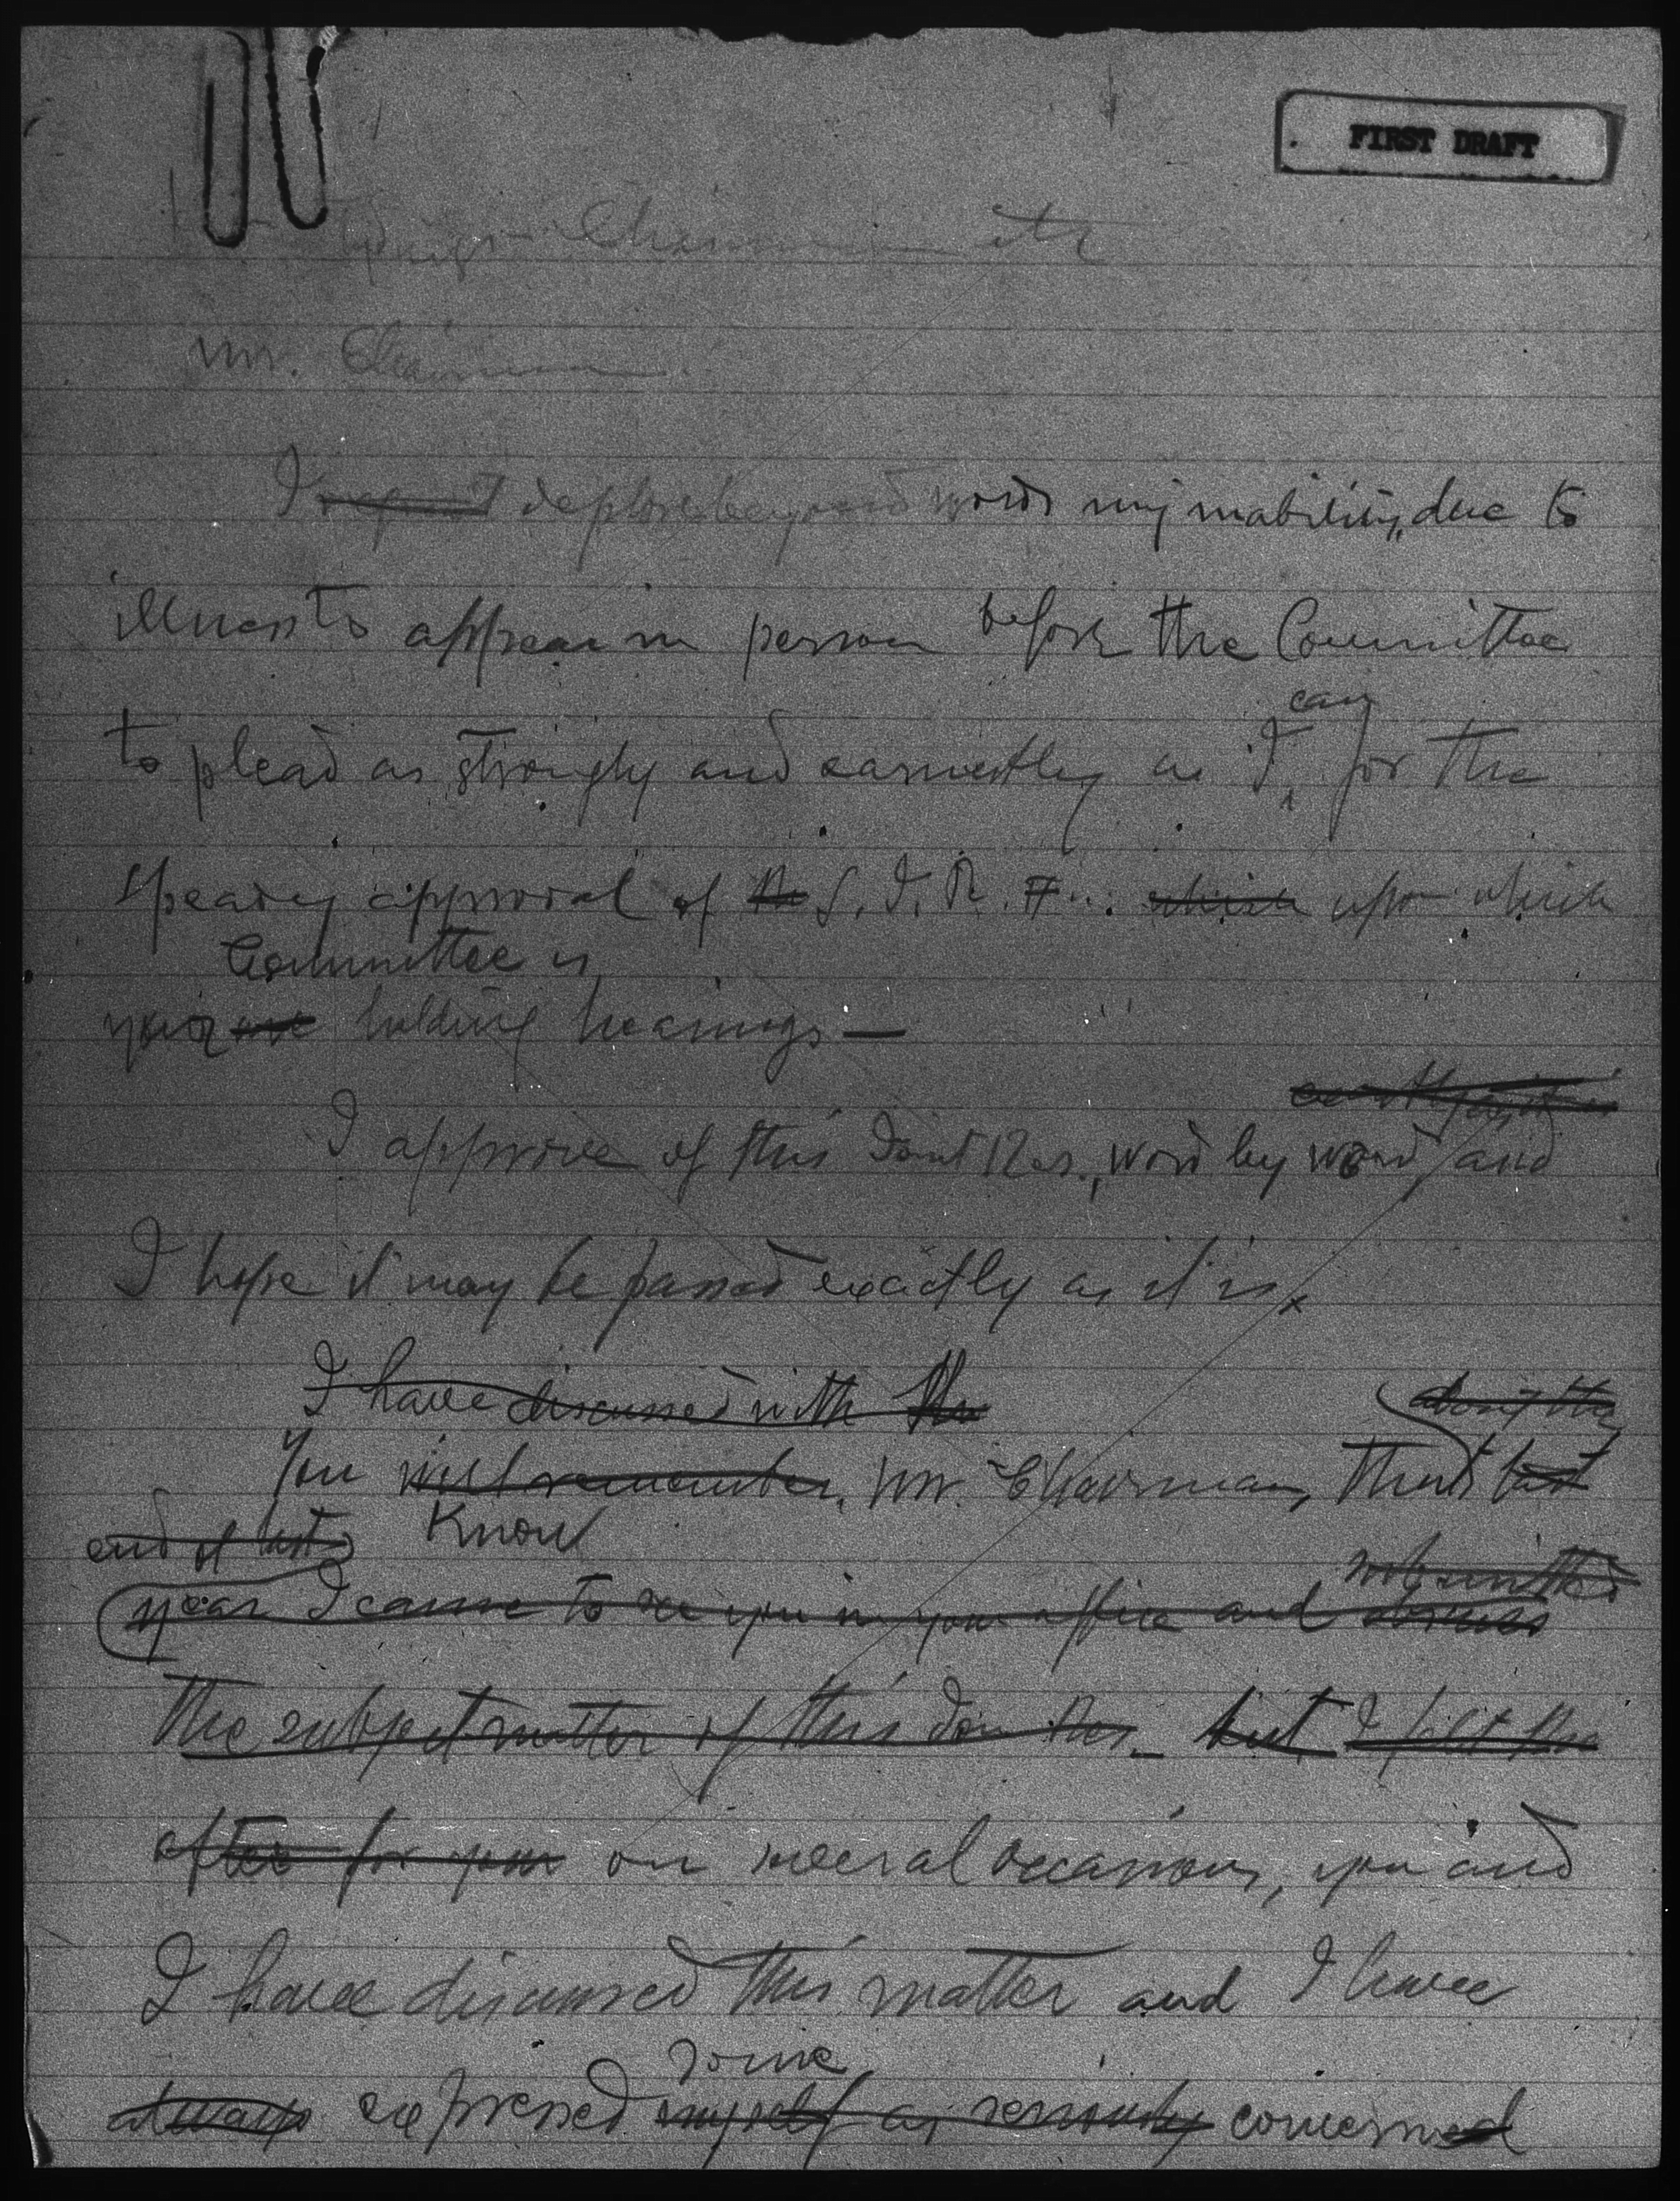 FIRST DRAFT
Chairman etc
Mr. Chairman
I deplore beyond words my inability, due to
illness to appear in person before the Committee
can
to plead as strongly and earnestly as I for the
speady approval of the S. J. R. which upon which
Committee is
your are holding hearings —
I approve of this Joint Res., word by word and
I hope it may be passed exactly as it is.
I have discussed with the
You will remember, Mr. Chairman, that last
end of last Know
submitted
year I came to see you in your office and discuss
the subject matter of this Join Res. but I felt the
after for your on several occasions, you and
I have discussed this matter and I have
some
always expressed myself as seriously concerned